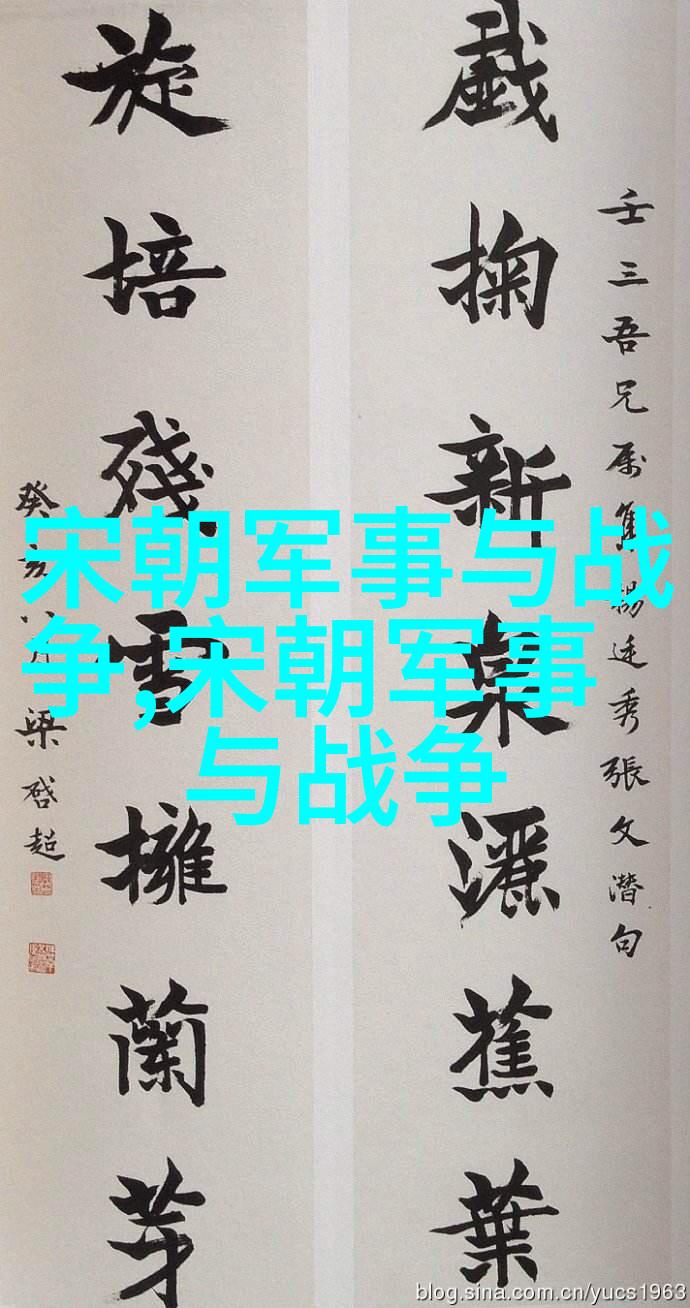 壬三吾兄属集楊廷秀張文潛句
戲掬新泉灑蕉葉
旋培殘雪擁蘭芽
癸亥 梁啓超
宋朝军事与战
争,宋朝军事
与战争
blog.sina.com.cn/yucs1963